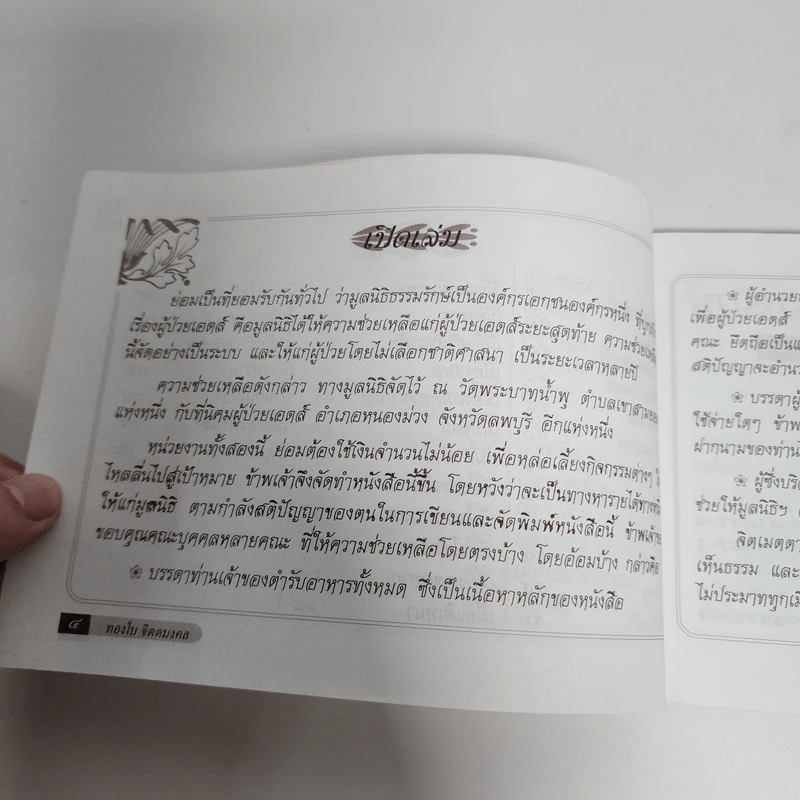 เปิดเล่ม
ย่อมเป็นที่ยอมรับกันทั่วไป ว่ามูลนิธิธรรมรักษ์เป็นองค์กรเอกชนองค์กรหนึ่ง
เรื่องผู้ป่วยเอดส์ คือมูลนิธิได้ให้ความช่วยเหลือแก่ผู้ป่วยเอดส์ระยะสุดท้าย
นี้จัดอย่างเป็นระบบ และให้แก่ผู้ป่วยโดยไม่เลือกชาติศาสนา เป็นระยะเวลาหลายปี
ความช่วยเหลือดังกล่าว ทางมูลนิธิจัดไว้ ณ วัดพระบาทน้ำพุ
แห่งหนึ่ง กับที่นิคมผู้ป่วยเอดส์ อำเภอหนองม่วง จังหวัดลพบุรี อีกแห่งหนึ่ง
หน่วยงานทั้งสองนี้ ย่อมต้องใช้เงินจำนวนไม่น้อย เพื่อหล่อเลี้ยงกิจกรรมต่างๆ
ไหลลื่นไปสู่เป้าหมาย ข้าพเจ้าจึงจัดทำหนังสือนี้ขึ้น โดยหวังว่าจะเป็นทางหารายได้
ให้แก่มูลนิธิ ตามกำลังสติปัญญาของตนในการเขียนและจัดพิมพ์หนังสือนี้
ขอบคุณคณะบุคคลหลายคณะ ที่ให้ความช่วยเหลือโดยตรงบ้าง โดยอ้อมบ้าง กล่าวคือ
❀ บรรดาท่านเจ้าของตำรับอาหารทั้งหมด ซึ่งเป็นเนื้อหาหลักของหนังสือ
๔ ทองใบ จิตตมงคล
❀ ผู้อำนวย
เพื่อผู้ป่วยเอดส์
คณะ ยึดถือเป็น
สติปัญญาจะอำนว
❀ บรรดาผู้
ใช้จ่ายใดๆ ข้าพ
ฝากนามของท่าน
❀ ผู้ซึ่งบริ
ช่วยให้มูลนิธิฯ
จิตเมตตา
เห็นธรรม และ
ไม่ประมาททุก